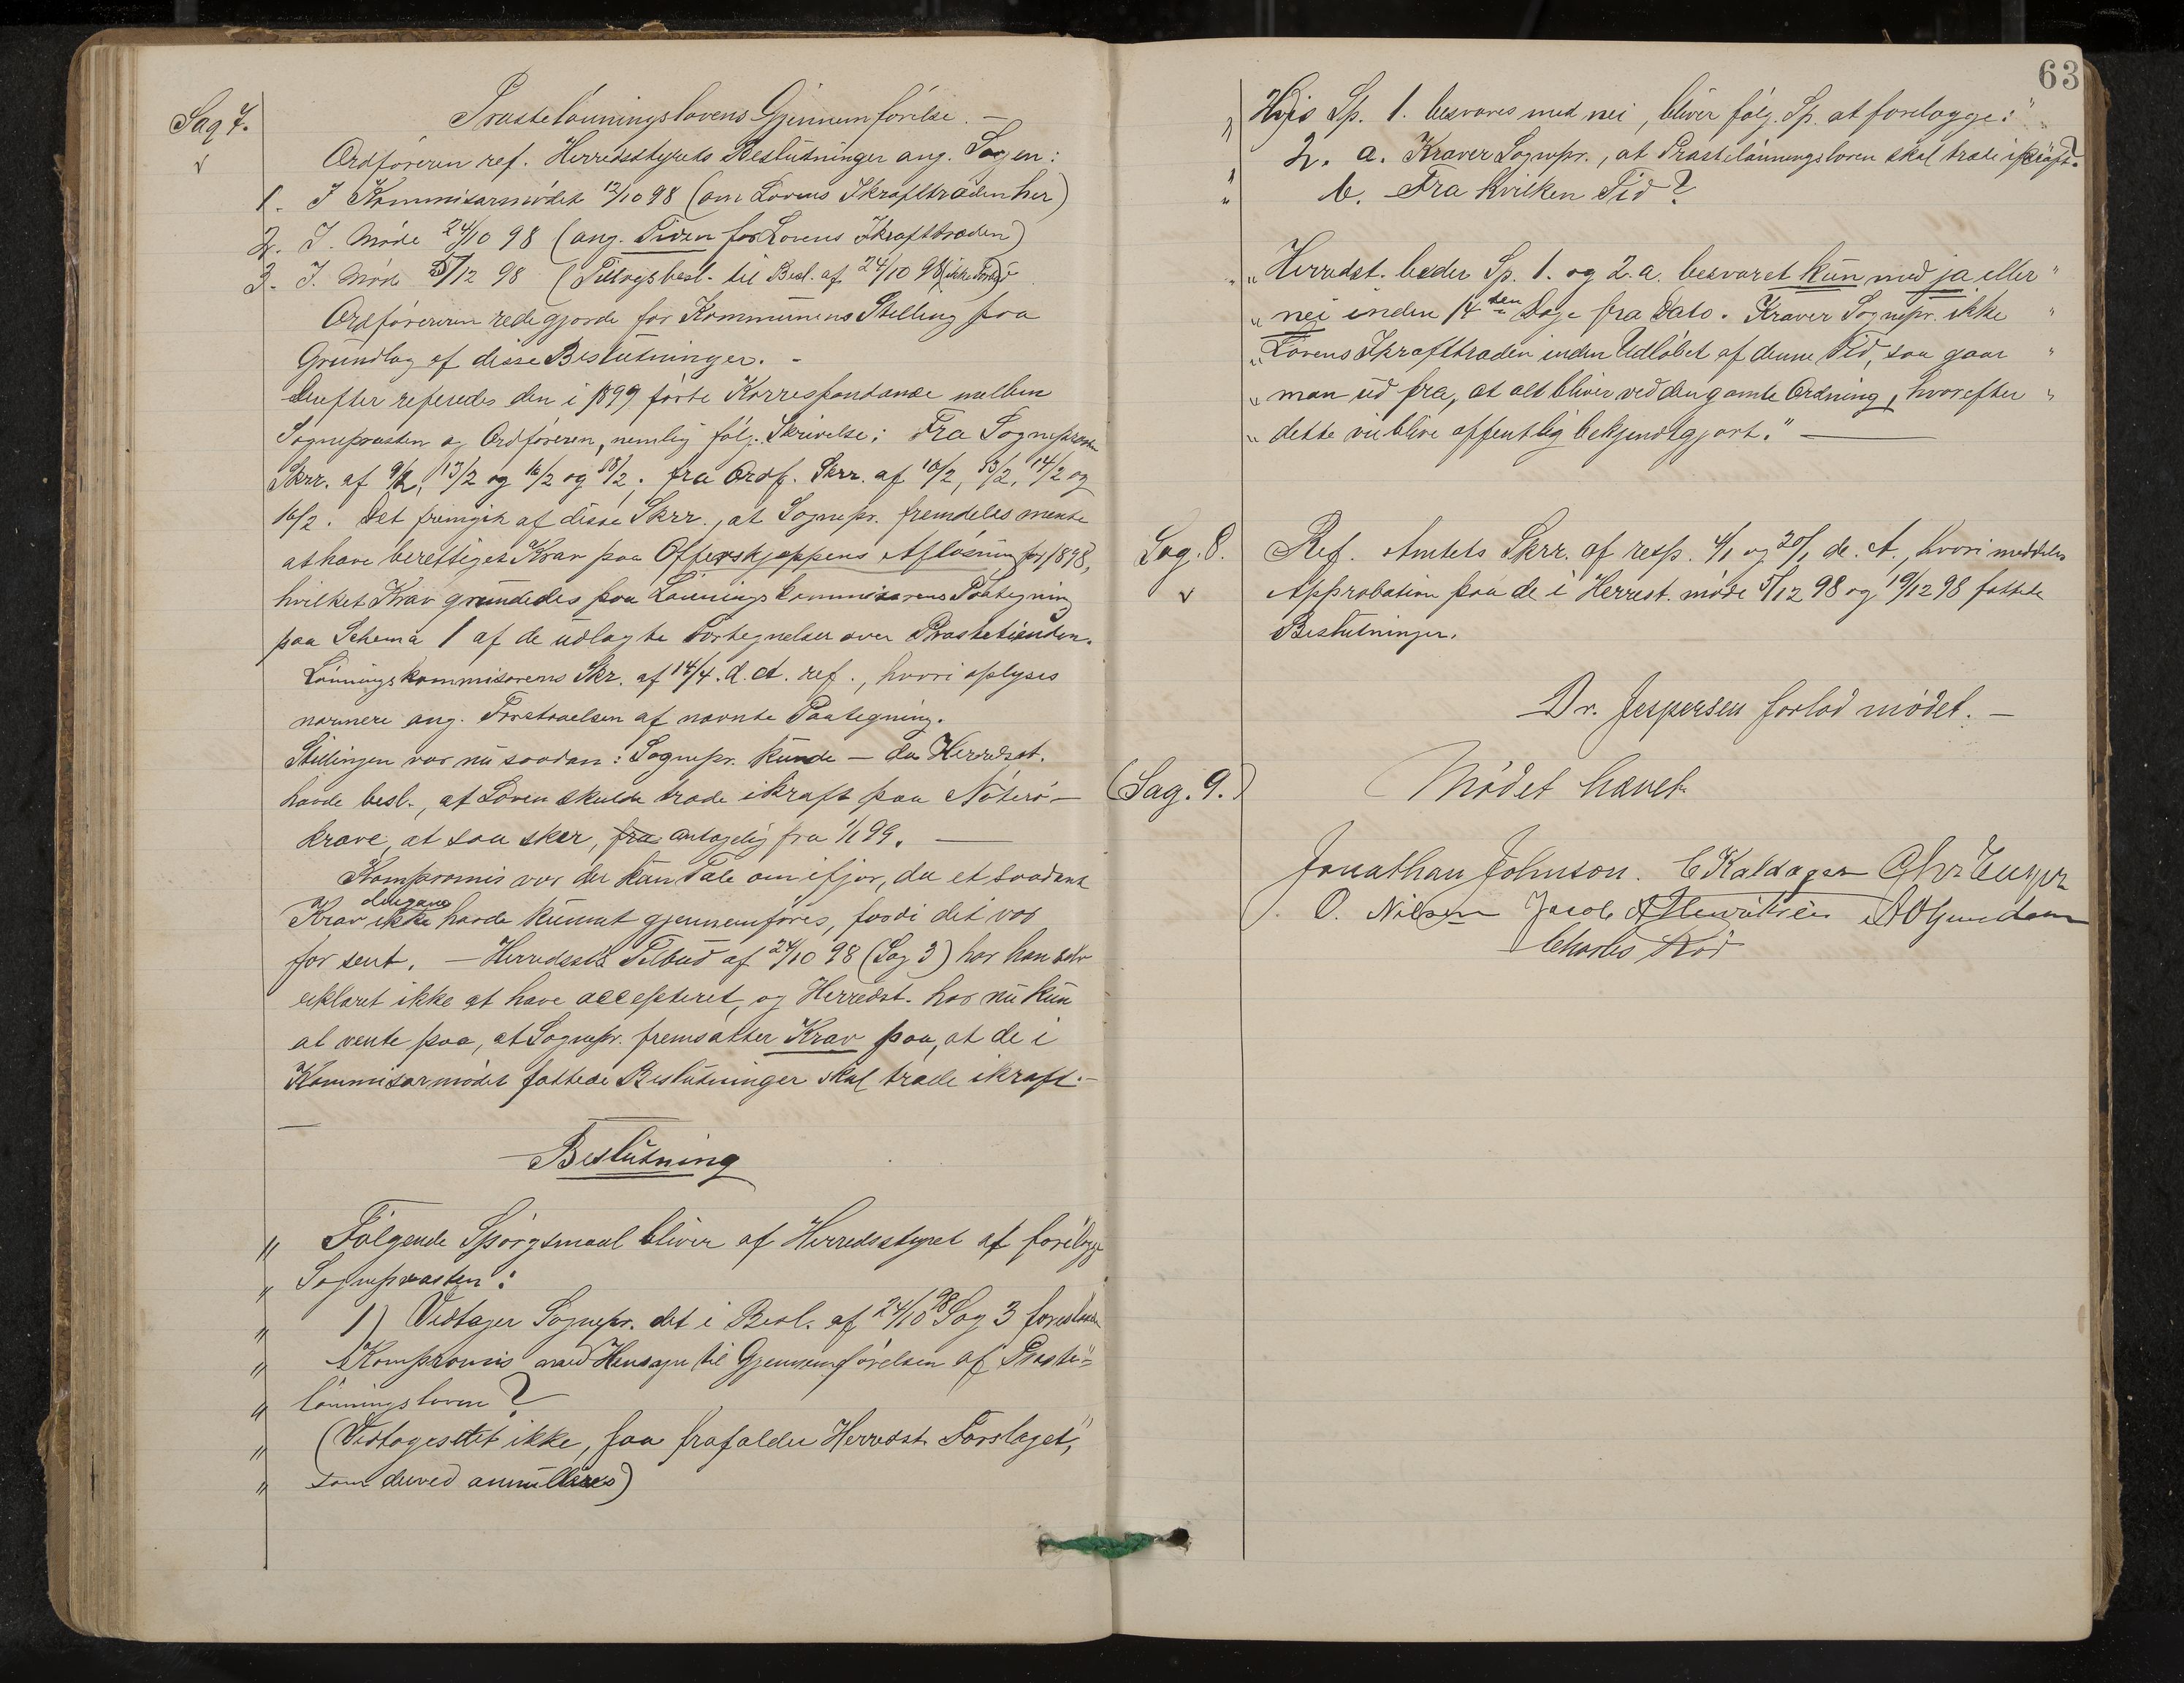 Sag 7.
Præstelønningslovens Gjennemførelse. —
Ordføreren ref. Herredsstyrets Beslutninger ang. Sagen:
1. I Kommisærmødet 12/10 98 (om Lovens Ikrafttræden her)
2. I. Møde 24/10 98 (ang. Tiden for Lovens Ikrafttræden)
3. I. Møde 5/12 98 (Tillægsbesl. til Besl. af 24/10 98
Ordføreren redegjorde for Kommunens Stilling paa
Grundlag af disse Beslutninger. -
Derefter referedes den i 1899 førte Korrespondance mellem
Sognepræsten og Ordføreren, nemlig følg. Skrivelse: Fra Sognepræsten
Skrr. af 9/2, 13/2 og 16/2 og 18/2; fra Ordf. Skrr. af 10/2, 13/2, 14/2 og
16/2. Det fremgik af disse Skrr., at Sognepr. fremdeles mente
at have berettiget Krav paa Offerskjæppens Afløsning for 1898,
hvilket Krav grundedes paa Lønningskommisærens Paategning
paa Schema 1 af de udlagte Fortegnelser over Præstetienden.
Lønningskommisærens Skr. af 14/4. d. A. ref., hvori oplyses
nærmere ang. Forstaaelsen af nævnte Paategning.
Stillingen var nu saadan: Sognepr. kunde — da Herredsst.
havde besl., at Loven skulde træde ikraft paa Nøterø —
kræve, at saa sker, fra antagelig fra 1/1 99. —
Kompromis var der kun Tale om ifjor, da et saadant
Krav ikke dengang havde kunnet gjennemføres, fordi det var
for sent. — Herredsst.s Tilbud af 24/10 98 (Sag 3) har han selv
erklæret ikke at have accepteret, og Herredst. har nu kun
at vente paa, at Sognepr. fremsætter Krav paa, at de i
Kommisærmødet fattede Beslutninger skal træde ikraft. —
Beslutning
" Følgende Spørgsmaal bliver af Herredsstyret at forelægge
" Sognepræsten:
" 1) Vedtager Sognepr. det i Besl. af 24/10 98 Sag 3 foreslaaede
" Kompromis med Hensyn til Gjennemførelsen af Præste-"
" lønningsloven?
" (Vedtages det ikke, saa frafalder Herredst. Forslaget,"
" som derved annulleres)
63
" Hvis Sp. 1. besvares med nei, bliver følg. Sp. at forelægge: "
" 2. a. Kræver Sognepr., at Præstelønningsloven skal træde ikraft?
" b. Fra hvilken Tid?
" Herredst. beder Sp. 1. og 2.a. besvaret kun med ja eller "
" nei inden 14 den Dage fra Dato. Kræver Sognepr. ikke "
" Lovens Ikrafttræden inden Udløbet af denne Tid, saa gaar "
" man ud fra, at alt bliver ved den gamle Ordning, hvorefter "
" dette vil blive offentlig bekjendtgjort." —
Sag. 8.
Ref. Amtets Skrr. af resp. 4/1 og 20/1 d. A., hvori meddeles
Approbation paa de i Herrest. møde 5/12 98 og 19/12 98 fattede
Beslutninger.
Dr. Jespersen forlod mødet. —
(Sag. 9.)
Mødet hævet.
Jonathan Johnson. C Kaldager
O. Nilsen Jacob A Henriksen A O Gundersen
Charles Rød